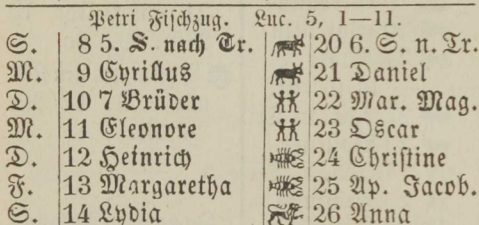 Petri Fischzug. Luc. 5, 1—11.
S. 8 5. S. nach Tr. 20 6. S. n. Tr.
M. 9 Cyrillus 21 Daniel
D. 10 7 Brüder 22 Mar. Mag.
M. 11 Eleonore 23 Oscar
D. 12 Heinrich 24 Christine
F. 13 Margaretha 25 Ap. Jacob.
S. 14 Lydia 26 Anna